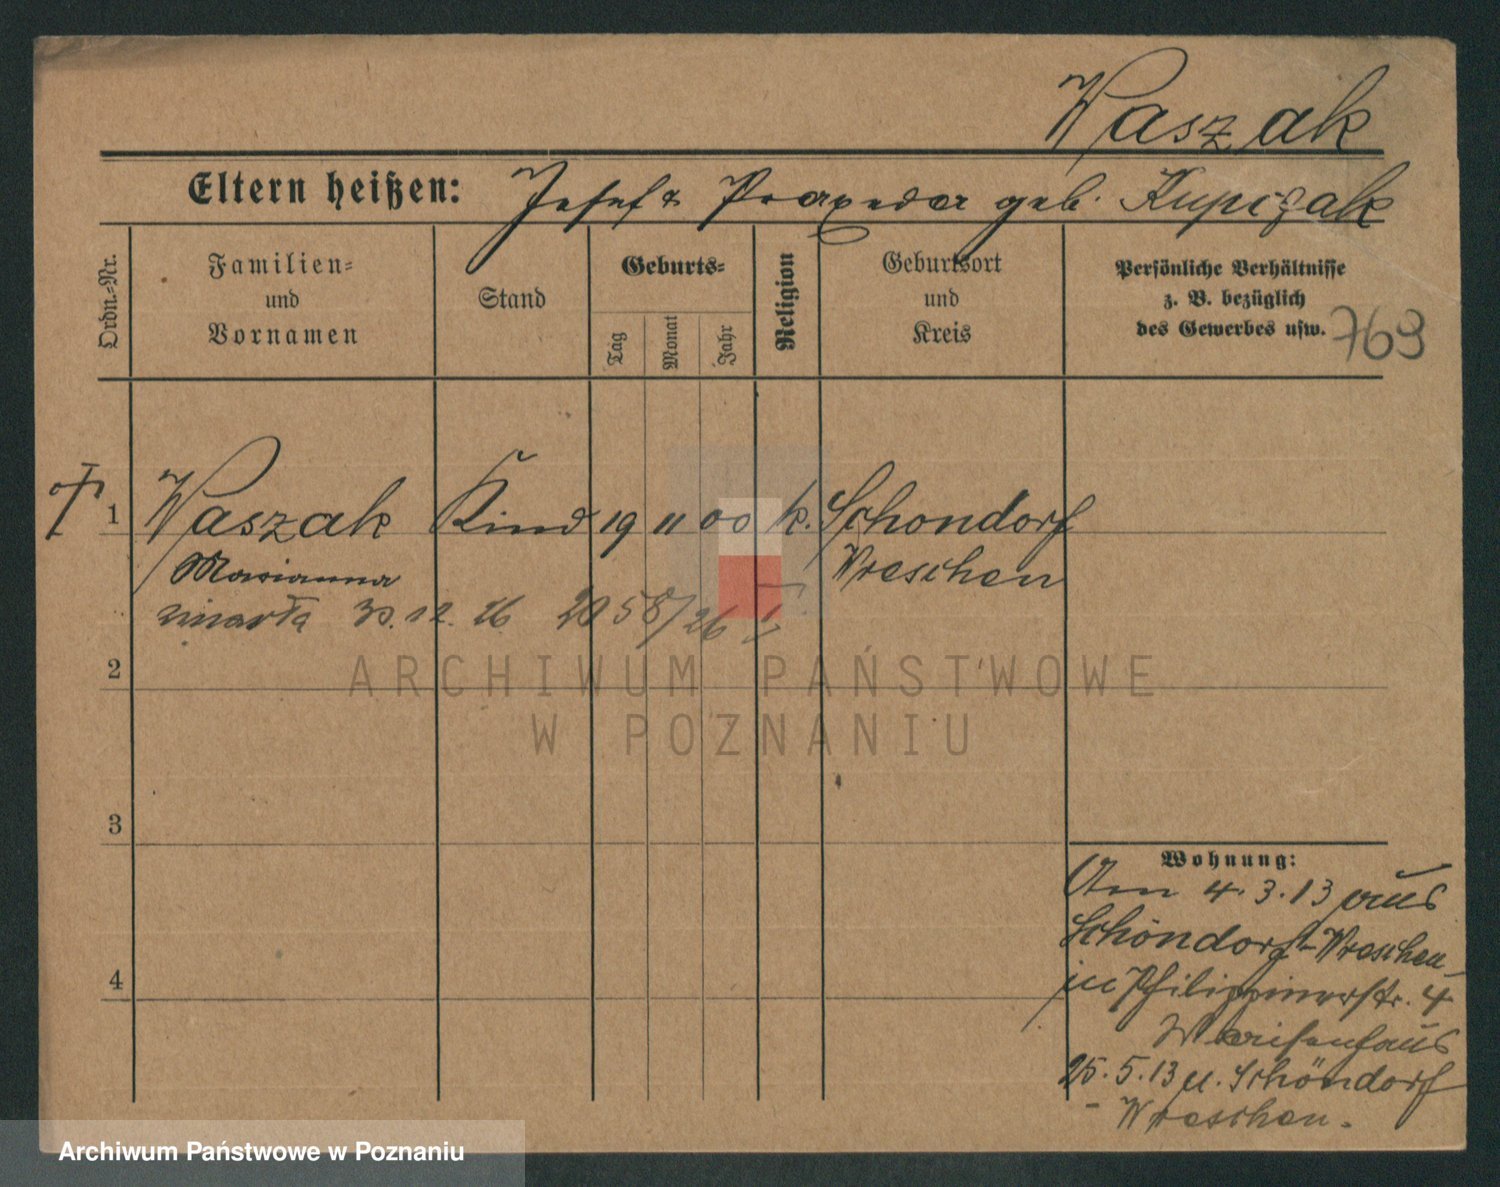 Waszak
Eltern heißen: Josef & Praxeda geb. Kupczak
Ordn.-Nr.
Familien-
und
Vornamen
Stand
Geburts-
Tag
Monat
Jahr
Religion
Geburtsort
und
Kreis
Persönliche Verhältnisse
z. B. bezüglich
des Gewerbes usw.
769
1 Waszak Kind 19 11 00 k. Schöndorf
Marianna Wreschen
zmarła 30.12.26 58/26
2
ARCHIWUM PAŃSTWOWE
W POZNANIU
3
Wohnung:
Am 4.3.13 aus
Schöndorf-Wreschen
in Philippinerstr. 4
Waisenhaus
4
25.5.13 n. Schöndorf
- Wreschen.
Archiwum Państwowe w Poznaniu